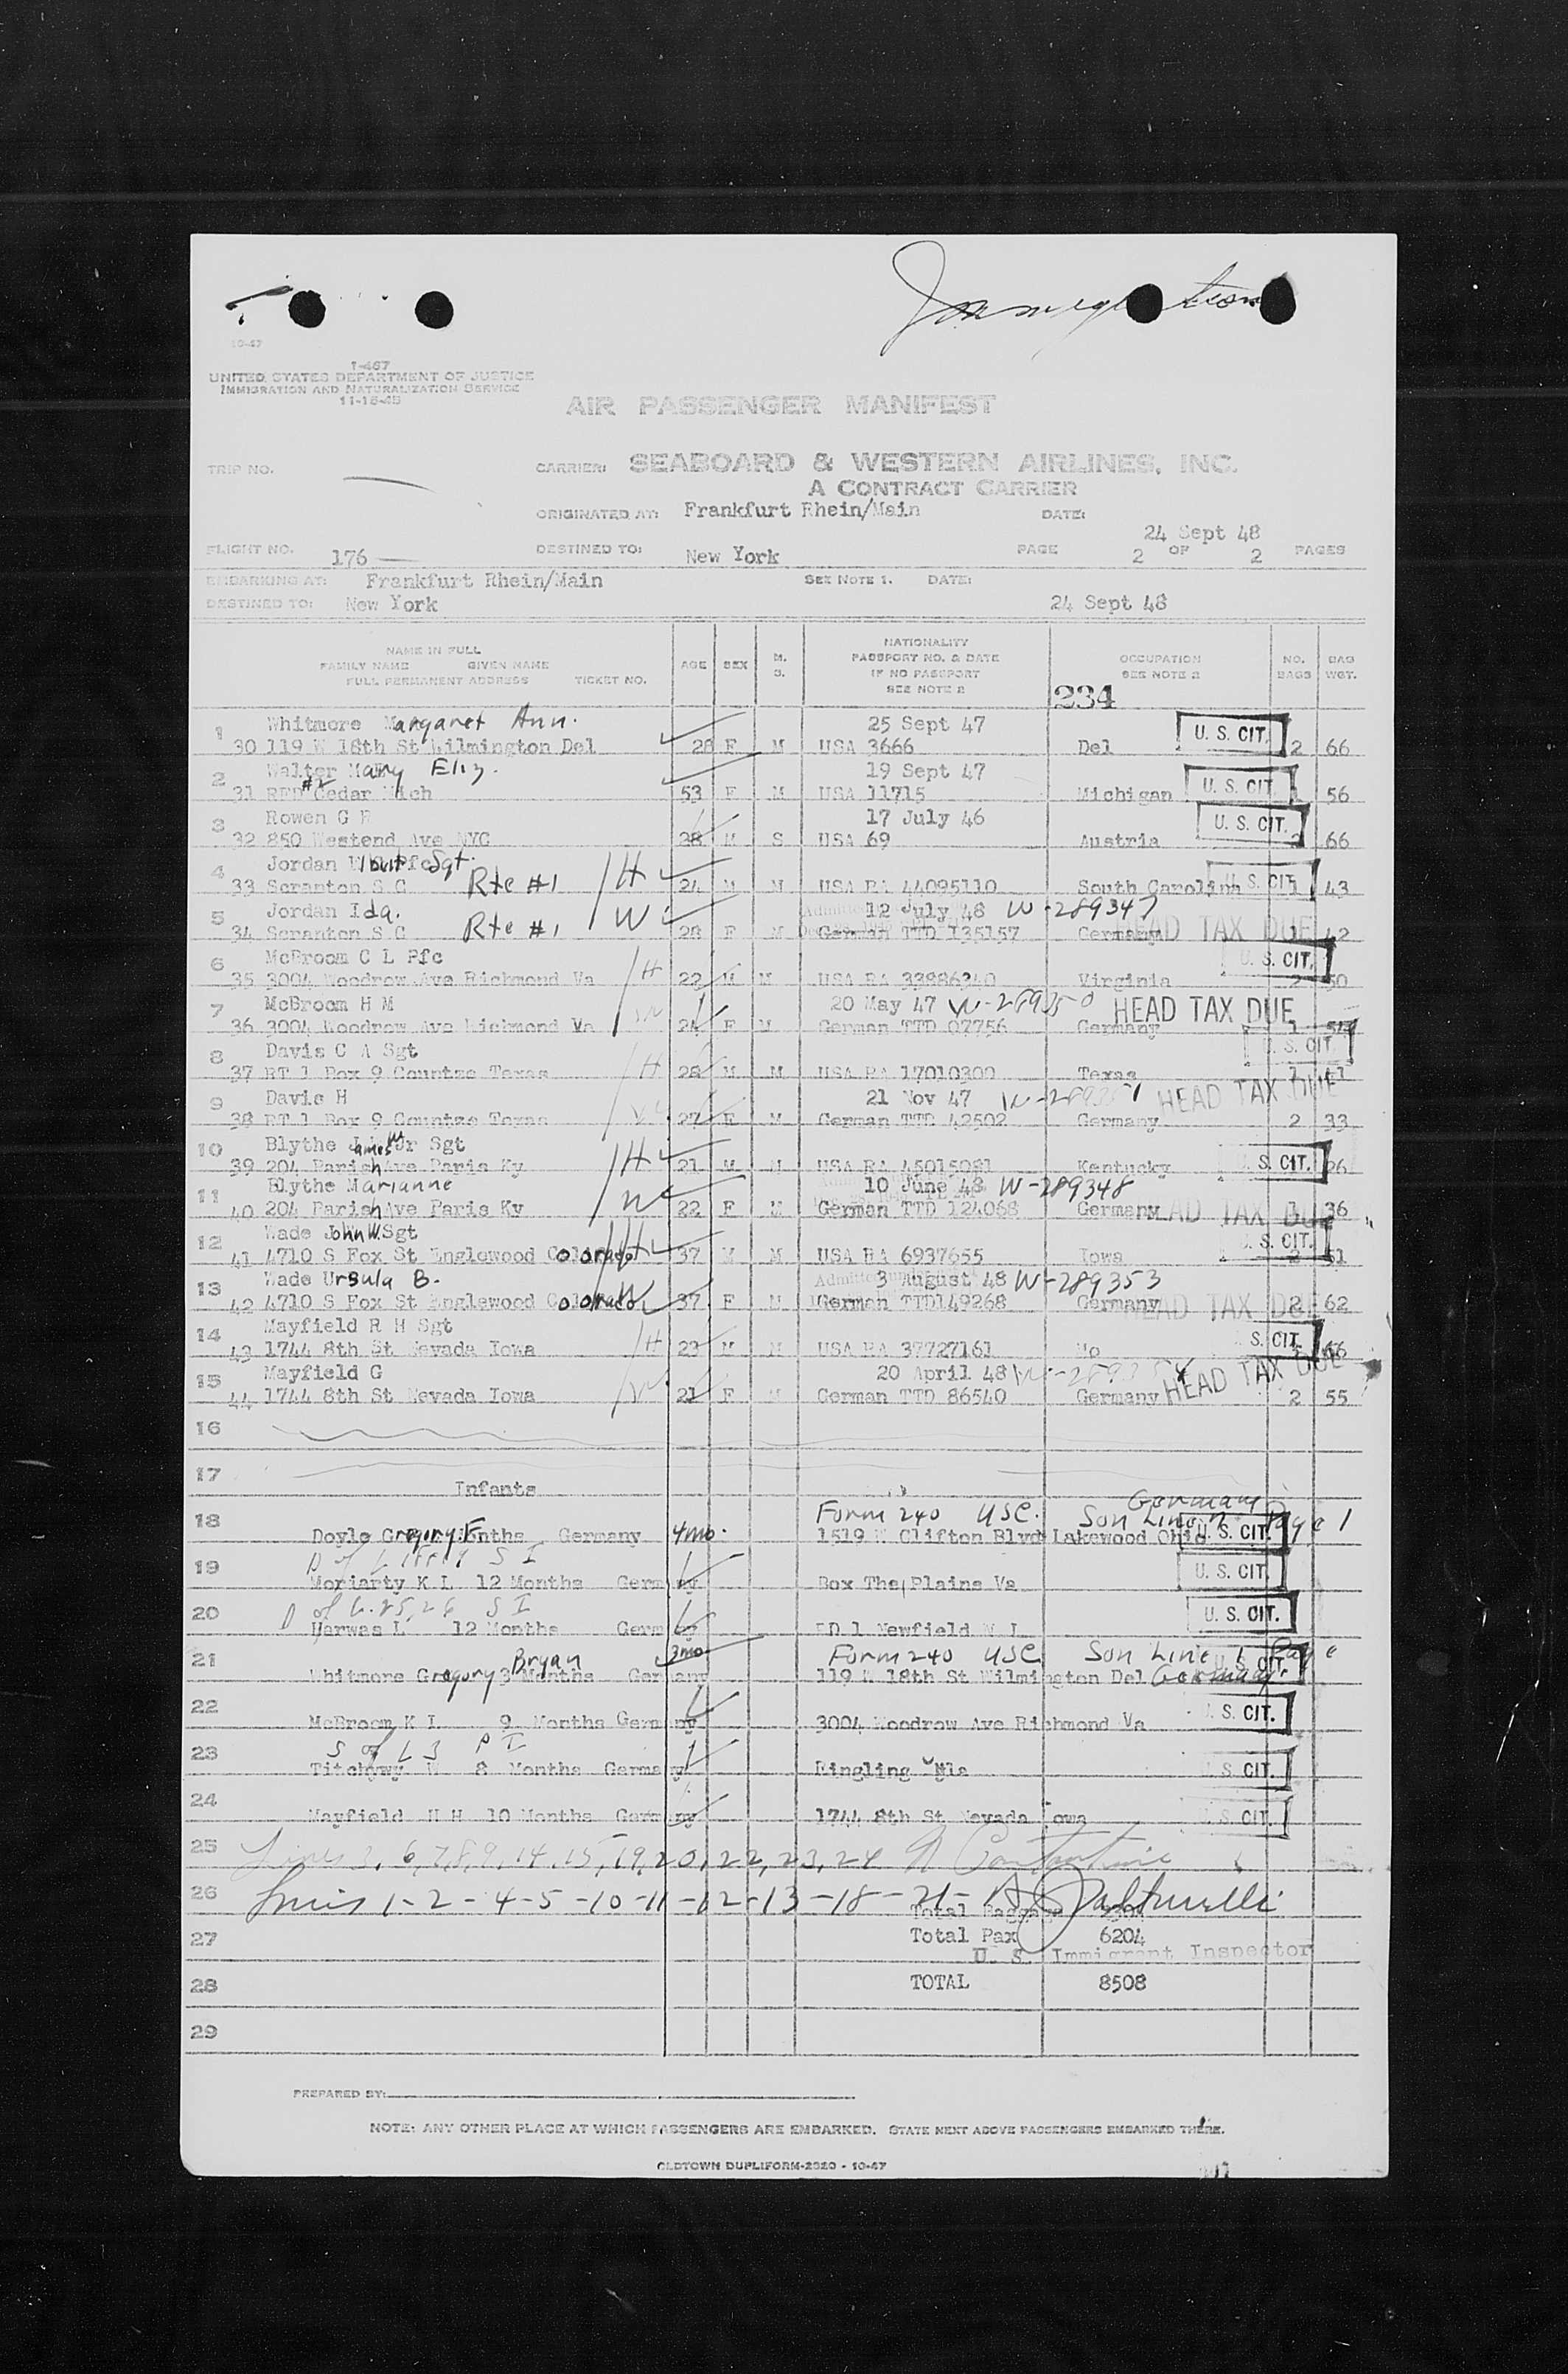 Immigration
10-47
I-467
UNITED STATES DEPARTMENT OF JUSTICE
IMMIGRATION AND NATURALIZATION SERVICE
11-18-45
AIR PASSENGER MANIFEST
TRIP NO. CARRIER: SEABOARD & WESTERN AIRLINES, INC.
A CONTRACT CARRIER
ORIGINATED AT: Frankfurt Rhein/Main DATE: 24 Sept 48
FLIGHT NO. 176 DESTINED TO: New York PAGE 2 OF 2 PAGES
EMBARKING AT: Frankfurt Rhein/Main SEE NOTE 1. DATE:
DESTINED TO: New York 24 Sept 48
NAME IN FULL
FAMILY NAME GIVEN NAME
FULL PERMANENT ADDRESS TICKET NO. AGE SEX M. S. NATIONALITY PASSPORT NO. & DATE IF NO PASSPORT SEE NOTE 2 OCCUPATION SEE NOTE 2 NO. BAGS BAG WGT.
234
1 Whitmore Margaret Ann. 25 Sept 47 U. S. CIT.
30 119 W 18th St Wilmington Del 28 F M USA 3666 Del 2 66
2 Walter Mary Eliz. 19 Sept 47 U. S. CIT.
31 RFD #2 Cedar Mich 53 F M USA 11715 Michigan 1 56
3 Rowen G 17 July 46 U. S. CIT.
32 850 Westend Ave NYC 28 M S USA 69 Austria 2 66
4 Jordan Pfc Sgt. H
33 Scranton S C Rte #1 24 M M USA RA 44095110 South Carolina U. S. CIT. 1 43
5 Jordan Ida. W 12 July 48 W-289347
34 Scranton S C Rte #1 28 F M German TTD 135157 Germany HEAD TAX DUE 1 42
6 McBroom C L Pfc H U. S. CIT.
35 3004 Woodrow Ave Richmond Va 22 M M USA RA 33886340 Virginia 2 50
7 McBroom H M W 20 May 47 W-289350 HEAD TAX DUE
36 3004 Woodrow Ave Richmond Va 24 F M German TTD 07756 Germany 1
8 Davis C A Sgt H U. S. CIT.
37 RT 1 Box 9 Countze Texas 28 M M USA RA 17010300 Texas 1
9 Davis H 21 Nov 47 HEAD TAX DUE
38 RT 1 Box 9 Countze Texas 27 F M German TTD 42502 Germany 2 33
10 Blythe James W Jr Sgt H U. S. CIT.
39 204 Parish Ave Paris Ky 21 M M USA RA 45015081 Kentucky 26
11 Blythe Marianne W 10 June 48 W-289348
40 204 Parish Ave Paris Ky 22 F M German TTD 124068 Germany HEAD TAX DUE 1 36
12 Wade John W. Sgt H U. S. CIT.
41 4710 S Fox St Englewood Colorado 37 M M USA RA 6937655 Iowa 2 51
13 Wade Ursula B. W 3 August 48 W-289353
42 4710 S Fox St Englewood Colorado 37 F M German TTD149268 Germany HEAD TAX DUE 2 62
14 Mayfield R H Sgt H U. S. CIT.
43 1744 8th St Nevada Iowa 23 M M USA RA 37727161 Mo 66
15 Mayfield G W 20 April 48 W-289354 HEAD TAX DUE
44 1744 8th St Nevada Iowa 21 F M German TTD 86540 Germany 2 55
16
17 Infants
18 Form 240 USC. Son Line 2 Page 1 Germany
Doyle Gregory Germany 4mo. 1519 W Clifton Blvd Lakewood Ohio U. S. CIT.
19 D of L S I
Moriarty K L 12 Months Germany Box The Plains Va U. S. CIT.
20 D of L. 25, 26 S I
Harwas L 12 Months Germany RD 1 Newfield N J U. S. CIT.
21 Bryan 3mo Form 240 USC Son Line 1 Page
Whitmore Gregory 3 Months Germany 119 W 18th St Wilmington Del Germany U. S. CIT.
22 McBroom K L 9 Months Germany 3004 Woodrow Ave Richmond Va U. S. CIT.
23 S of L 3 P I
Titchywy W 8 Months Germany Ringling U. S. CIT.
24 Mayfield H H 10 Months Germany 1744 8th St Nevada Iowa U. S. CIT.
25 Lines 3, 6, 7, 8, 9, 14, 15, 19, 20, 22, 23, 24
26 Lines 1-2-4-5-10-11-12-13-18-21-
Total Baggage
27 Total Pax 6204
U. S. Immigrant Inspector
28 TOTAL 8508
29
PREPARED BY:
NOTE: ANY OTHER PLACE AT WHICH PASSENGERS ARE EMBARKED. STATE NEXT ABOVE PASSENGERS EMBARKED THERE.
OLDTOWN DUPLIFORM-2320 - 10-47